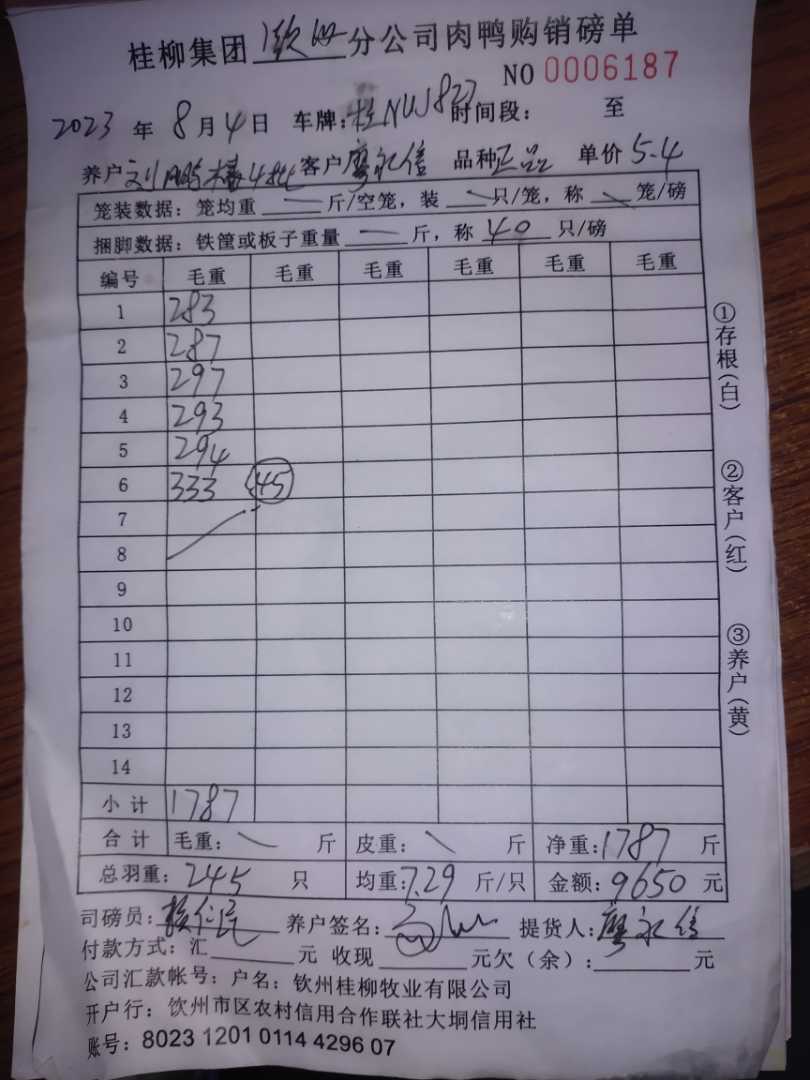 桂柳集团 钦州 分公司肉鸭购销磅单
NO 0006187
2023 年 8 月 4 日 车牌:桂NUJ827 时间段: 至
养户 刘鹏楼4批 客户 廖永信 品种 正品 单价 5.4
笼装数据:笼均重 — 斤/空笼,装 — 只/笼,称 — 笼/磅
捆脚数据:铁筐或板子重量 — 斤,称 40 只/磅
编号 毛重 毛重 毛重 毛重 毛重 毛重
1 283
2 287
3 297
4 293
5 294
6 333 45
7
8
9
10
11
12
13
14
小计 1787
合计 毛重: — 斤 皮重: — 斤 净重:1787 斤
总羽重:245 只 均重:7.29 斤/只 金额:9650 元
司磅员: 养户签名: 提货人:廖永信
付款方式:汇 元 收现 元欠(余): 元
公司汇款帐号:户名:钦州桂柳牧业有限公司
开户行:饮州市区农村信用合作联社大垌信用社
账号:8023 1201 0114 4296 07
①存根(白)
②客户(红)
③养户(黄)